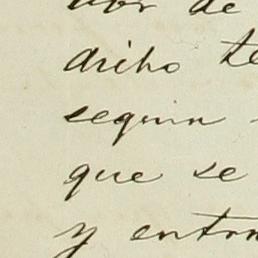 de
dicho te
seguin
que se
y enton